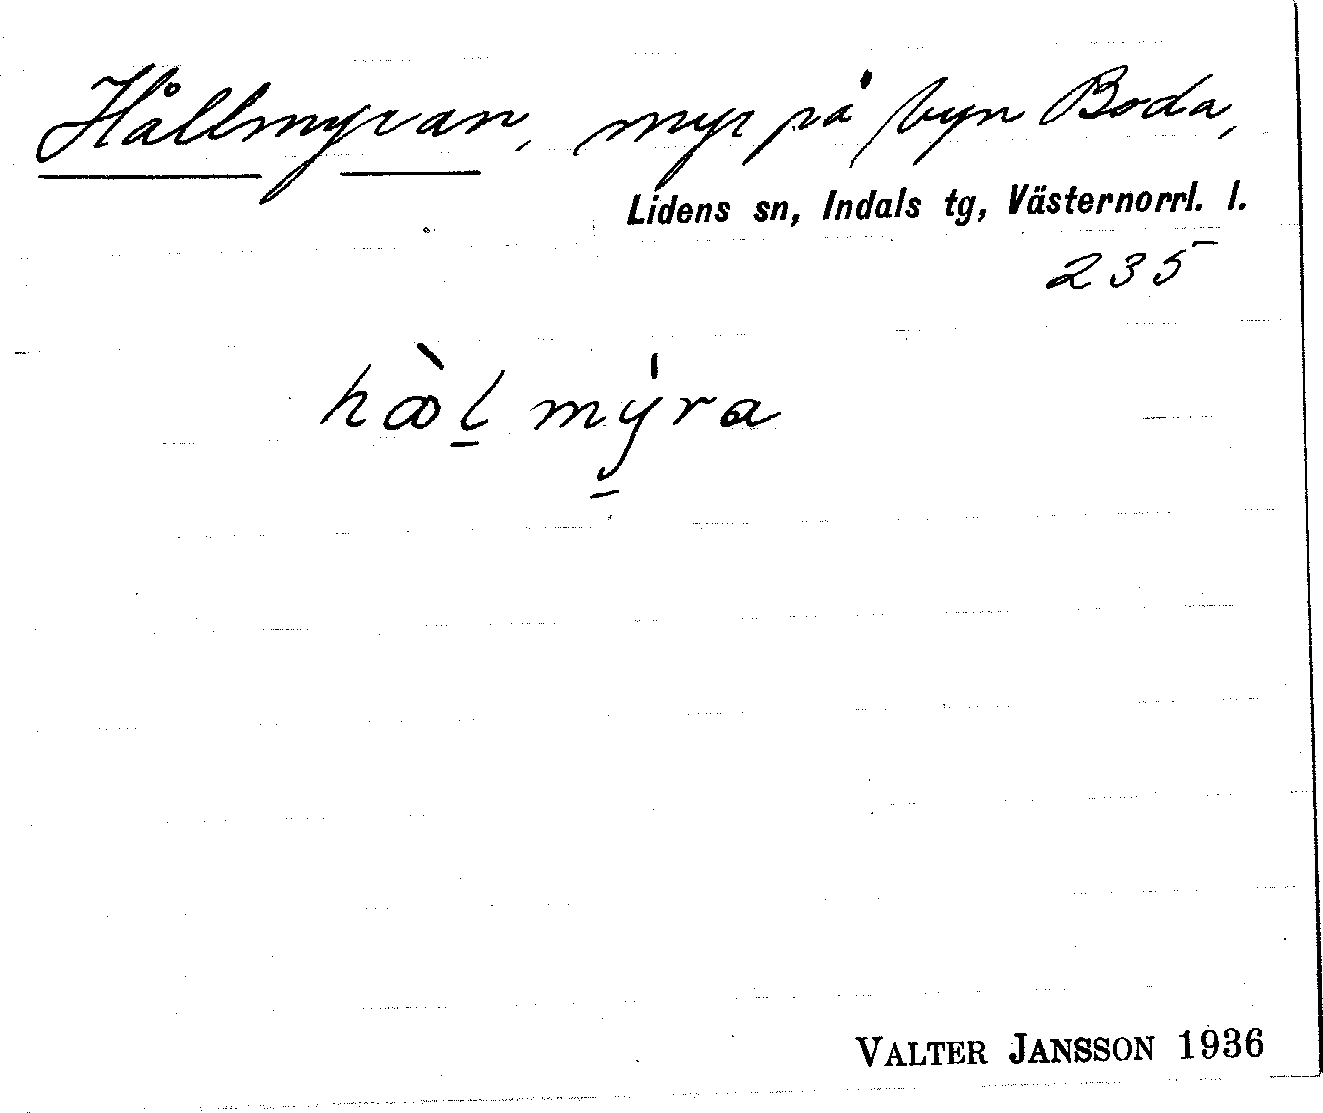 Hållmyran, myr på byn Boda,
Lidens sn, Indals tg, Västernorrl. l.
235
hòl̠ mý̠ra
VALTER JANSSON 1936